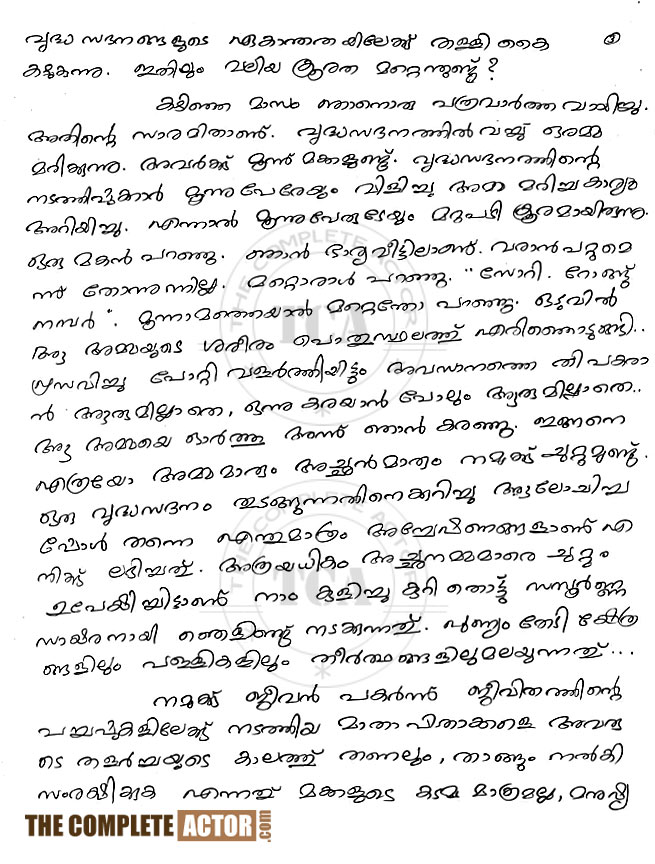 വൃദ്ധ സദനങ്ങളുടെ ഏകാന്തതയിലേക്ക് തള്ളി കൈ ③
കഴുകുന്നു. ഇതിലും വലിയ ക്രൂരത മറ്റെന്തുണ്ട്?
കഴിഞ്ഞ മാസം ഞാനൊരു പത്രവാർത്ത വായിച്ചു.
അതിന്റെ സാരമിതാണ്. വൃദ്ധസദനത്തിൽ വച്ചു ഒരമ്മ
മരിക്കുന്നു. അവർക്ക് മൂന്ന് മക്കളുണ്ട്. വൃദ്ധസദനത്തിന്റെ
നടത്തിപ്പുകാർ മൂന്നുപേരേയും വിളിച്ചു അമ്മ മരിച്ച കാര്യം
അറിയിച്ചു. എന്നാൽ മൂന്നുപേരുടേയും മറുപടി ക്രൂരമായിരുന്നു.
ഒരു മകൻ പറഞ്ഞു. ഞാൻ ഭാര്യവീട്ടിലാണ്. വരാൻ പറ്റുമെ
ന്ന് തോന്നുന്നില്ല. മറ്റൊരാൾ പറഞ്ഞു. "സോറി. റോങ്ങ്
നമ്പർ". മൂന്നാമത്തെയാൾ മറ്റെന്തോ പറഞ്ഞു. ഒടുവിൽ
ആ അമ്മയുടെ ശരീരം പൊതുസ്ഥലത്ത് എരിഞ്ഞൊടുങ്ങി..
പ്രസവിച്ചു പോറ്റി വളർത്തിയിട്ടും അവസാനത്തെ തീ പകരാ
ൻ ആരുമില്ലാതെ, ഒന്നു കരയാൻ പോലും ആരുമില്ലാതെ..
ആ അമ്മയെ ഓർത്തു അന്ന് ഞാൻ കരഞ്ഞു. ഇങ്ങനെ
എത്രയോ അമ്മമാരും അച്ഛൻമാരും നമുക്ക് ചുറ്റുമുണ്ട്.
ഒരു വൃദ്ധസദനം തുടങ്ങുന്നതിനെക്കുറിച്ചു ആലോചിച്ച
പ്പോൾ തന്നെ എന്തുമാത്രം അന്വേഷണങ്ങളാണ് എ
നിക്ക് ലഭിച്ചത്. അത്രയധികം അച്ഛനമ്മമാരെ ചുറ്റും
ഉപേക്ഷിച്ചിട്ടാണ് നാം കുളിച്ചു കുറി തൊട്ടു സമ്പൂർണ്ണ
സാക്ഷരനായി ഞെളിഞ്ഞു നടക്കുന്നത്. പുണ്യം തേടി ക്ഷേത്ര
ങ്ങളിലും പള്ളികളിലും തീർത്ഥങ്ങളിലുമലയുന്നത്...
നമുക്ക് ജീവൻ പകർന്ന് ജീവിതത്തിന്റെ
പച്ചപ്പുകളിലേക്ക് നടത്തിയ മാതാപിതാക്കളെ അവരു
ടെ തളർച്ചയുടെ കാലത്ത് തണലും, താങ്ങും നൽകി
സംരക്ഷിക്കുക എന്നത് മക്കളുടെ കടമ മാത്രമല്ല, മനുഷ്യ
THE COMPLETE ACTOR.com
THE COMPLETE ACTOR
TCA
THE COMPLETE ACTOR
TCA